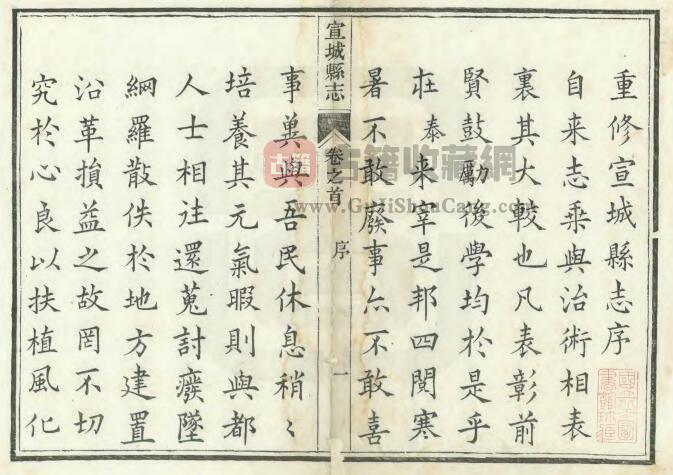 重修宣城縣志序
自来志乘與治術相表
裏其大較也凡表彰前
賢鼓勵後學均於是乎
在泰来宰是邦四閱寒
暑不敢廢事亦不敢喜
宣城縣志
卷之首
序
一
事兾與吾民休息稍〻
培養其元氣暇則與都
人士相往還蒐討癈墜
網羅散佚於地方建置
沿革損益之故罔不切
究於心良以扶植風化
古籍
古籍收藏網
www.GuJiShouCang.com